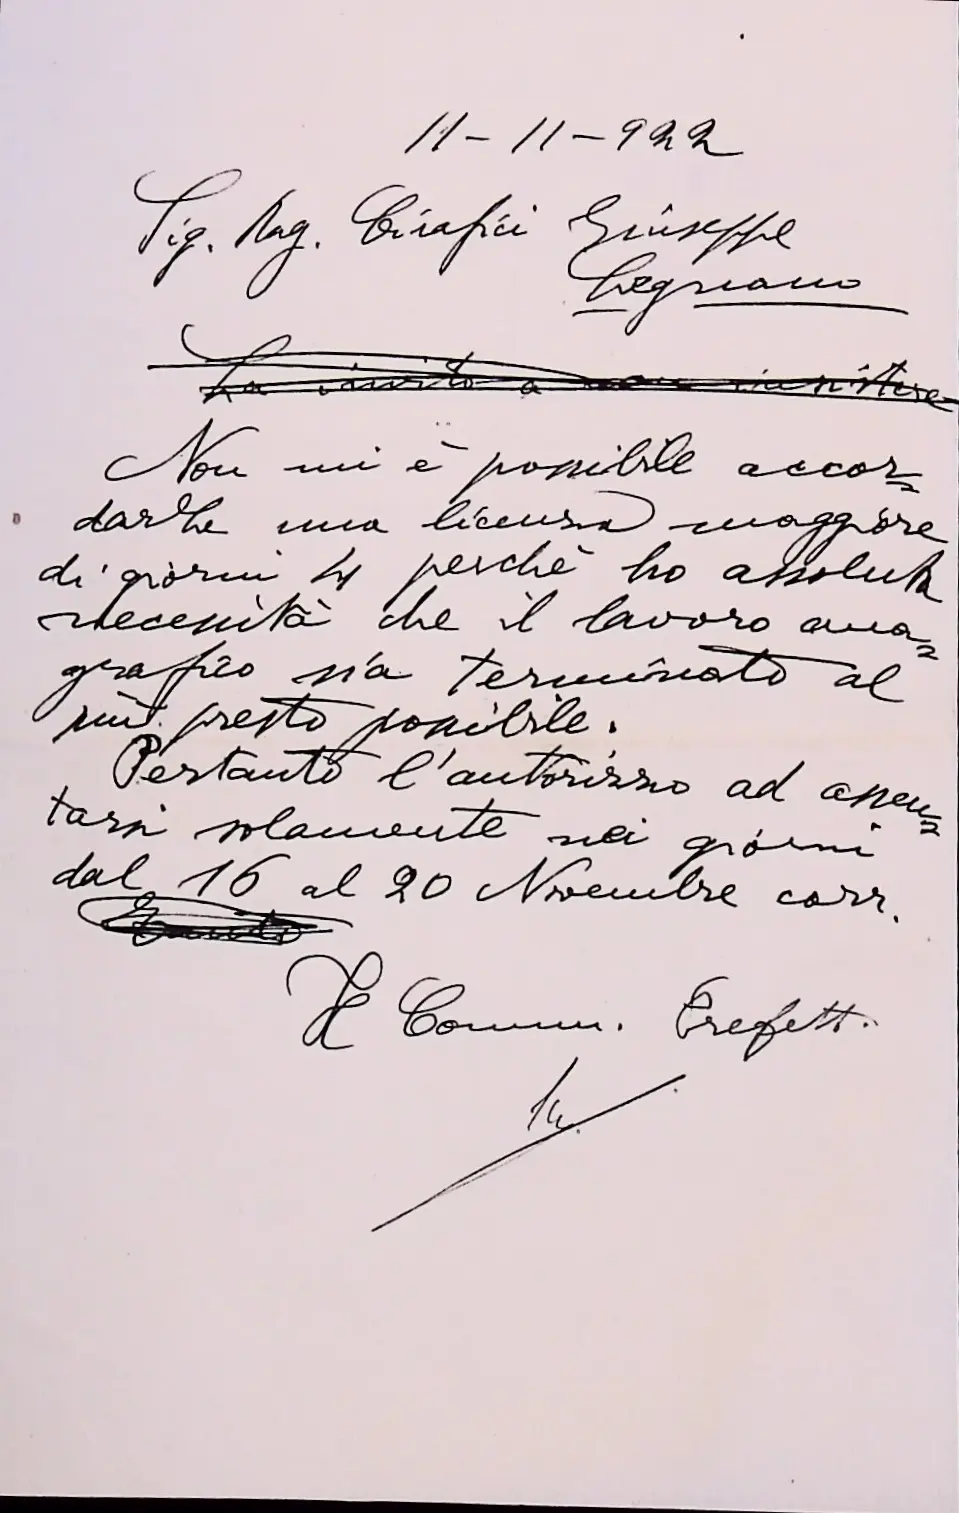 11-11-922
Sig. Rag. Cirafici Giuseppe
Legnano
La invito a non insistere
Non mi è possibile accor=
darLe una licenza maggiore
di giorni 4 perchè ho assoluta
necessità che il lavoro ana=
grafico sia terminato al
più presto possibile.
Pertanto l'autorizzo ad assen=
tarsi solamente nei giorni
dal 16 al 20 Novembre corr.
Il Comm. Prefett.